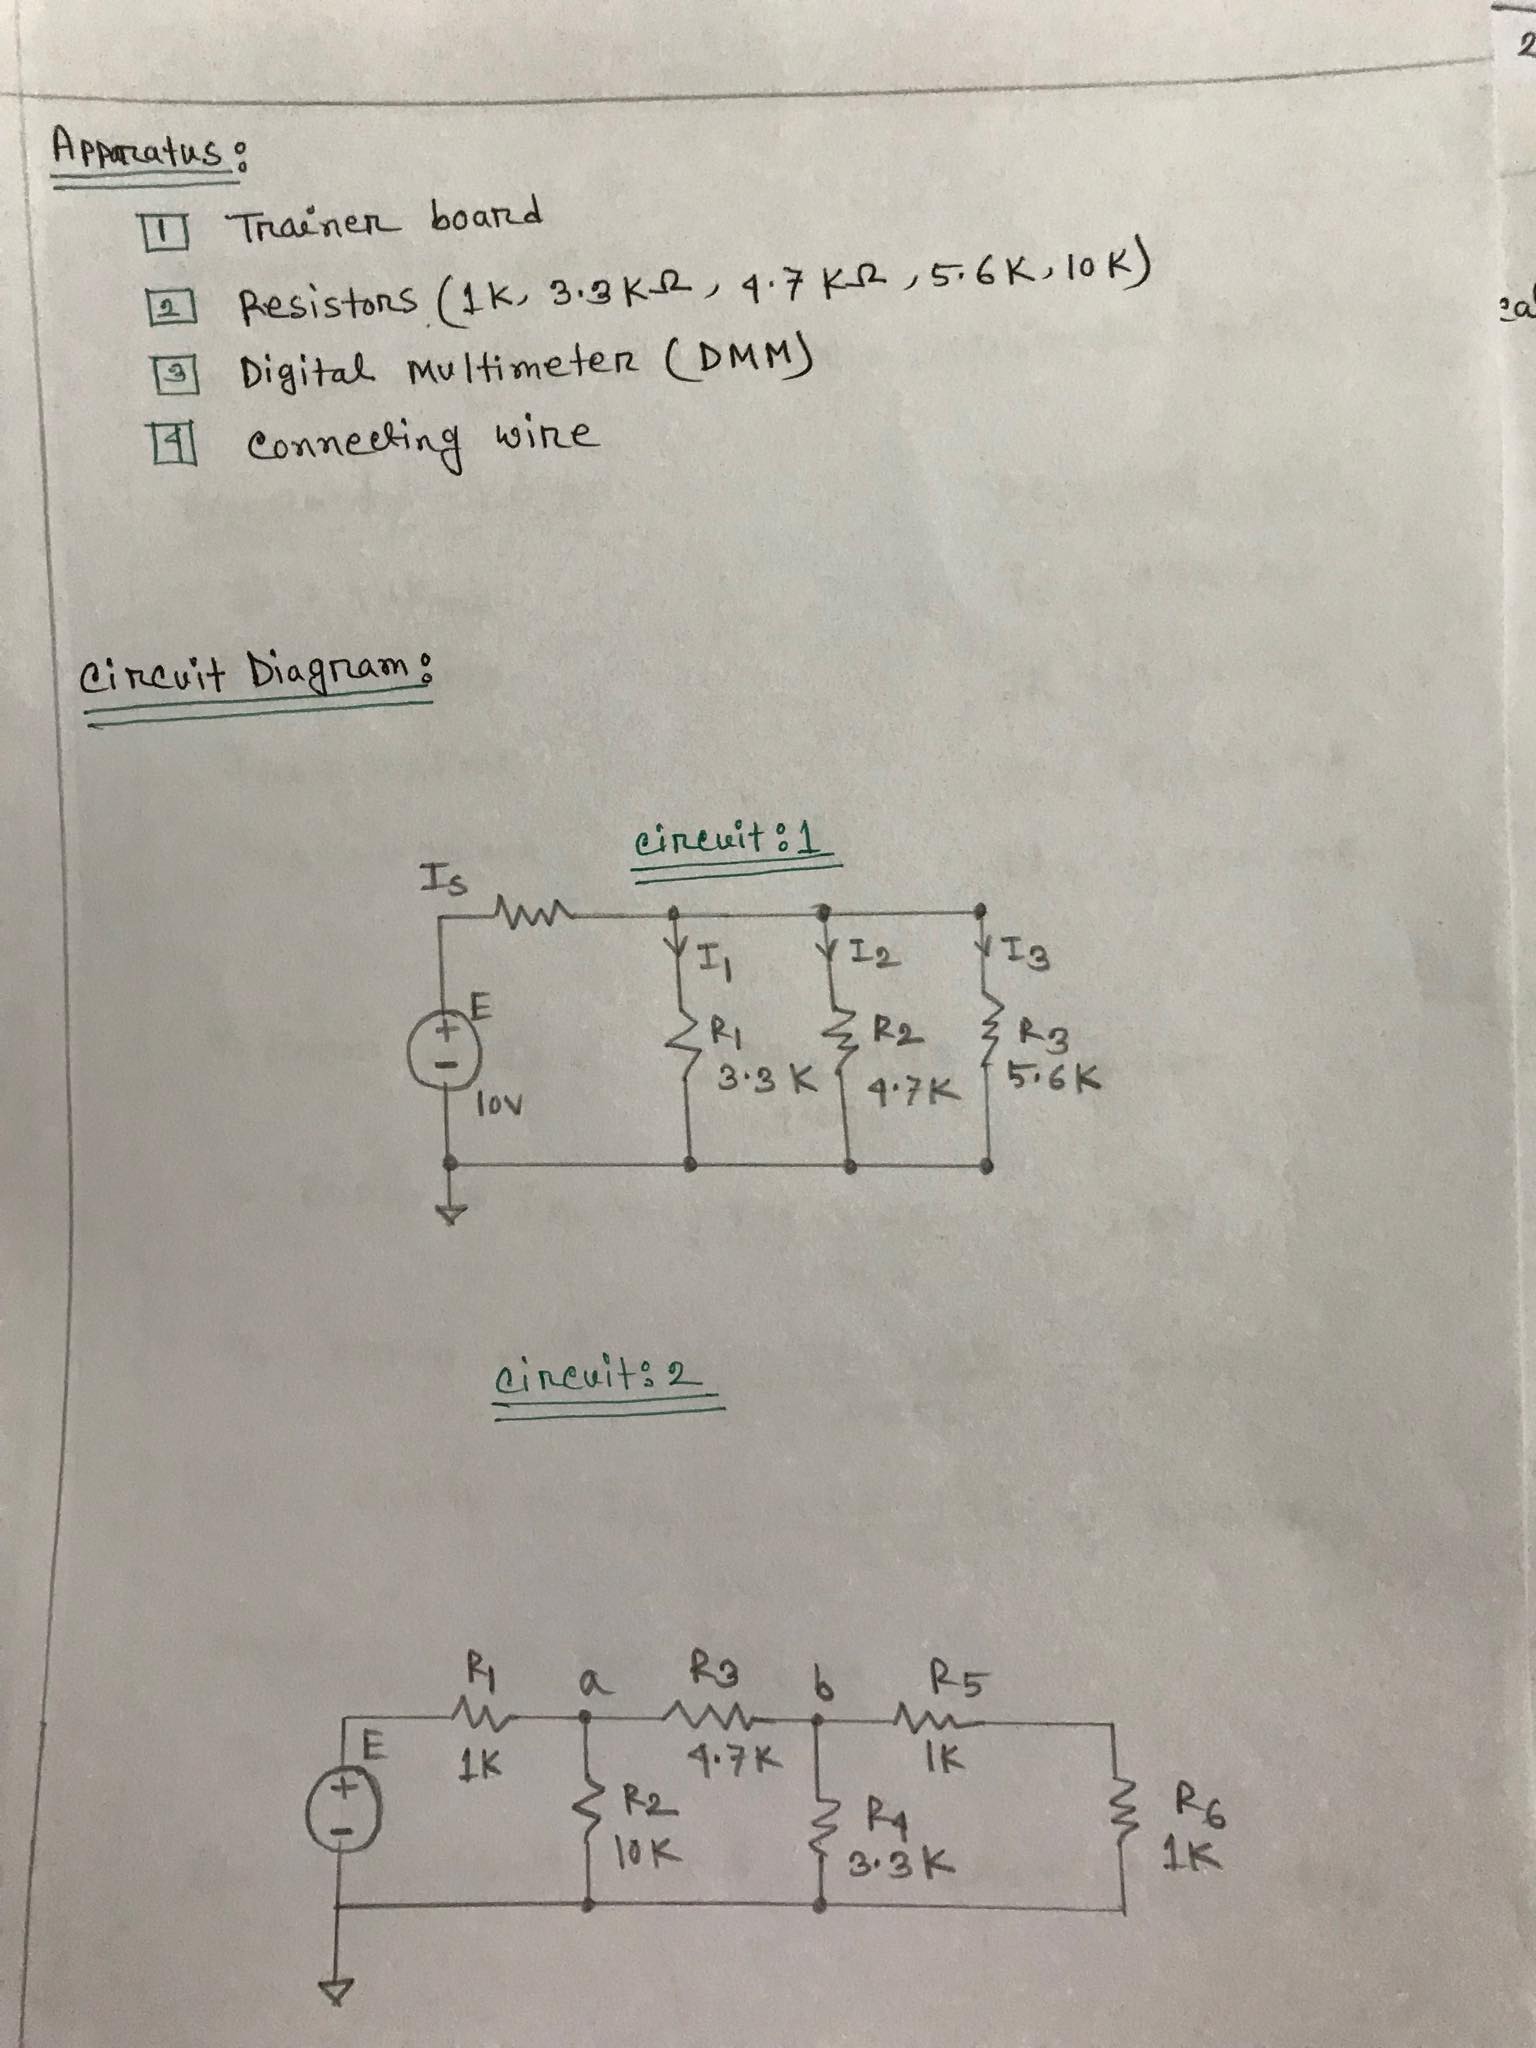 2
Apparatus:
1 Trainer board
2 Resistors (1K, 3.3KΩ, 4.7KΩ, 5.6K, 10K)
3 Digital Multimeter (DMM)
4 Connecting wire
Circuit Diagram:
circuit:1
Is
I1 I2 I3
E
R1 R2 R3
3.3K 4.7K 5.6K
10V
+
-
circuit:2
R1 a R3 b R5
E 1K 4.7K 1K
+
-
R2 R4 R6
10K 3.3K 1K